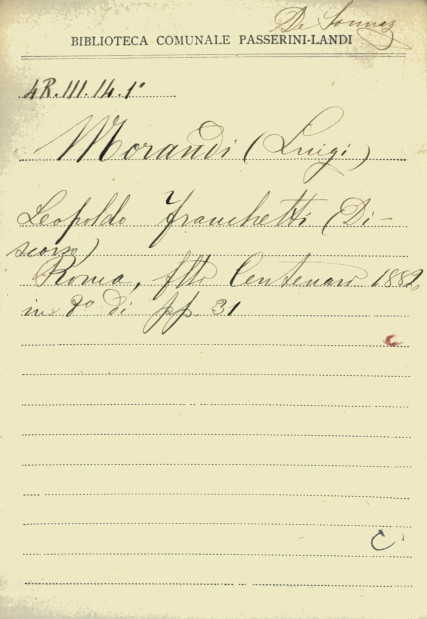 De Sonnaz
BIBLIOTECA COMUNALE PASSERINI-LANDI
4R.III.14.1°
Morandi (Luigi)
Leopoldo Franchetti (Di-
scorso)
Roma, flli Centenari 1882
in 8° di pp 31
C
C